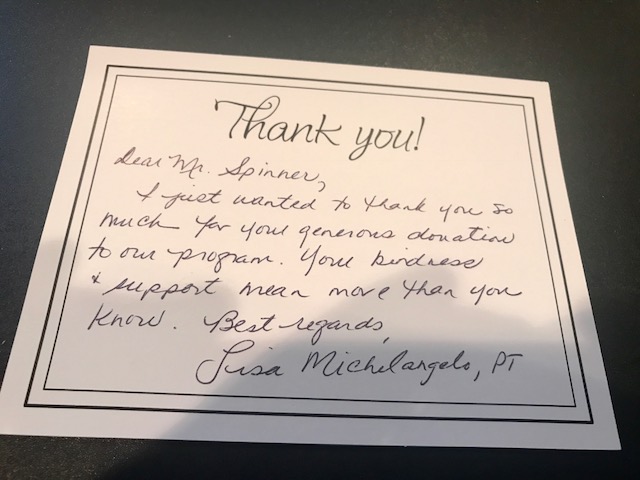 Thank you!
Dear Mr. Spinner,
I just wanted to thank you so
much for your generous donation
to our program. Your kindness
& support mean more than you
know. Best regards,
Lisa Michelangelo, PT